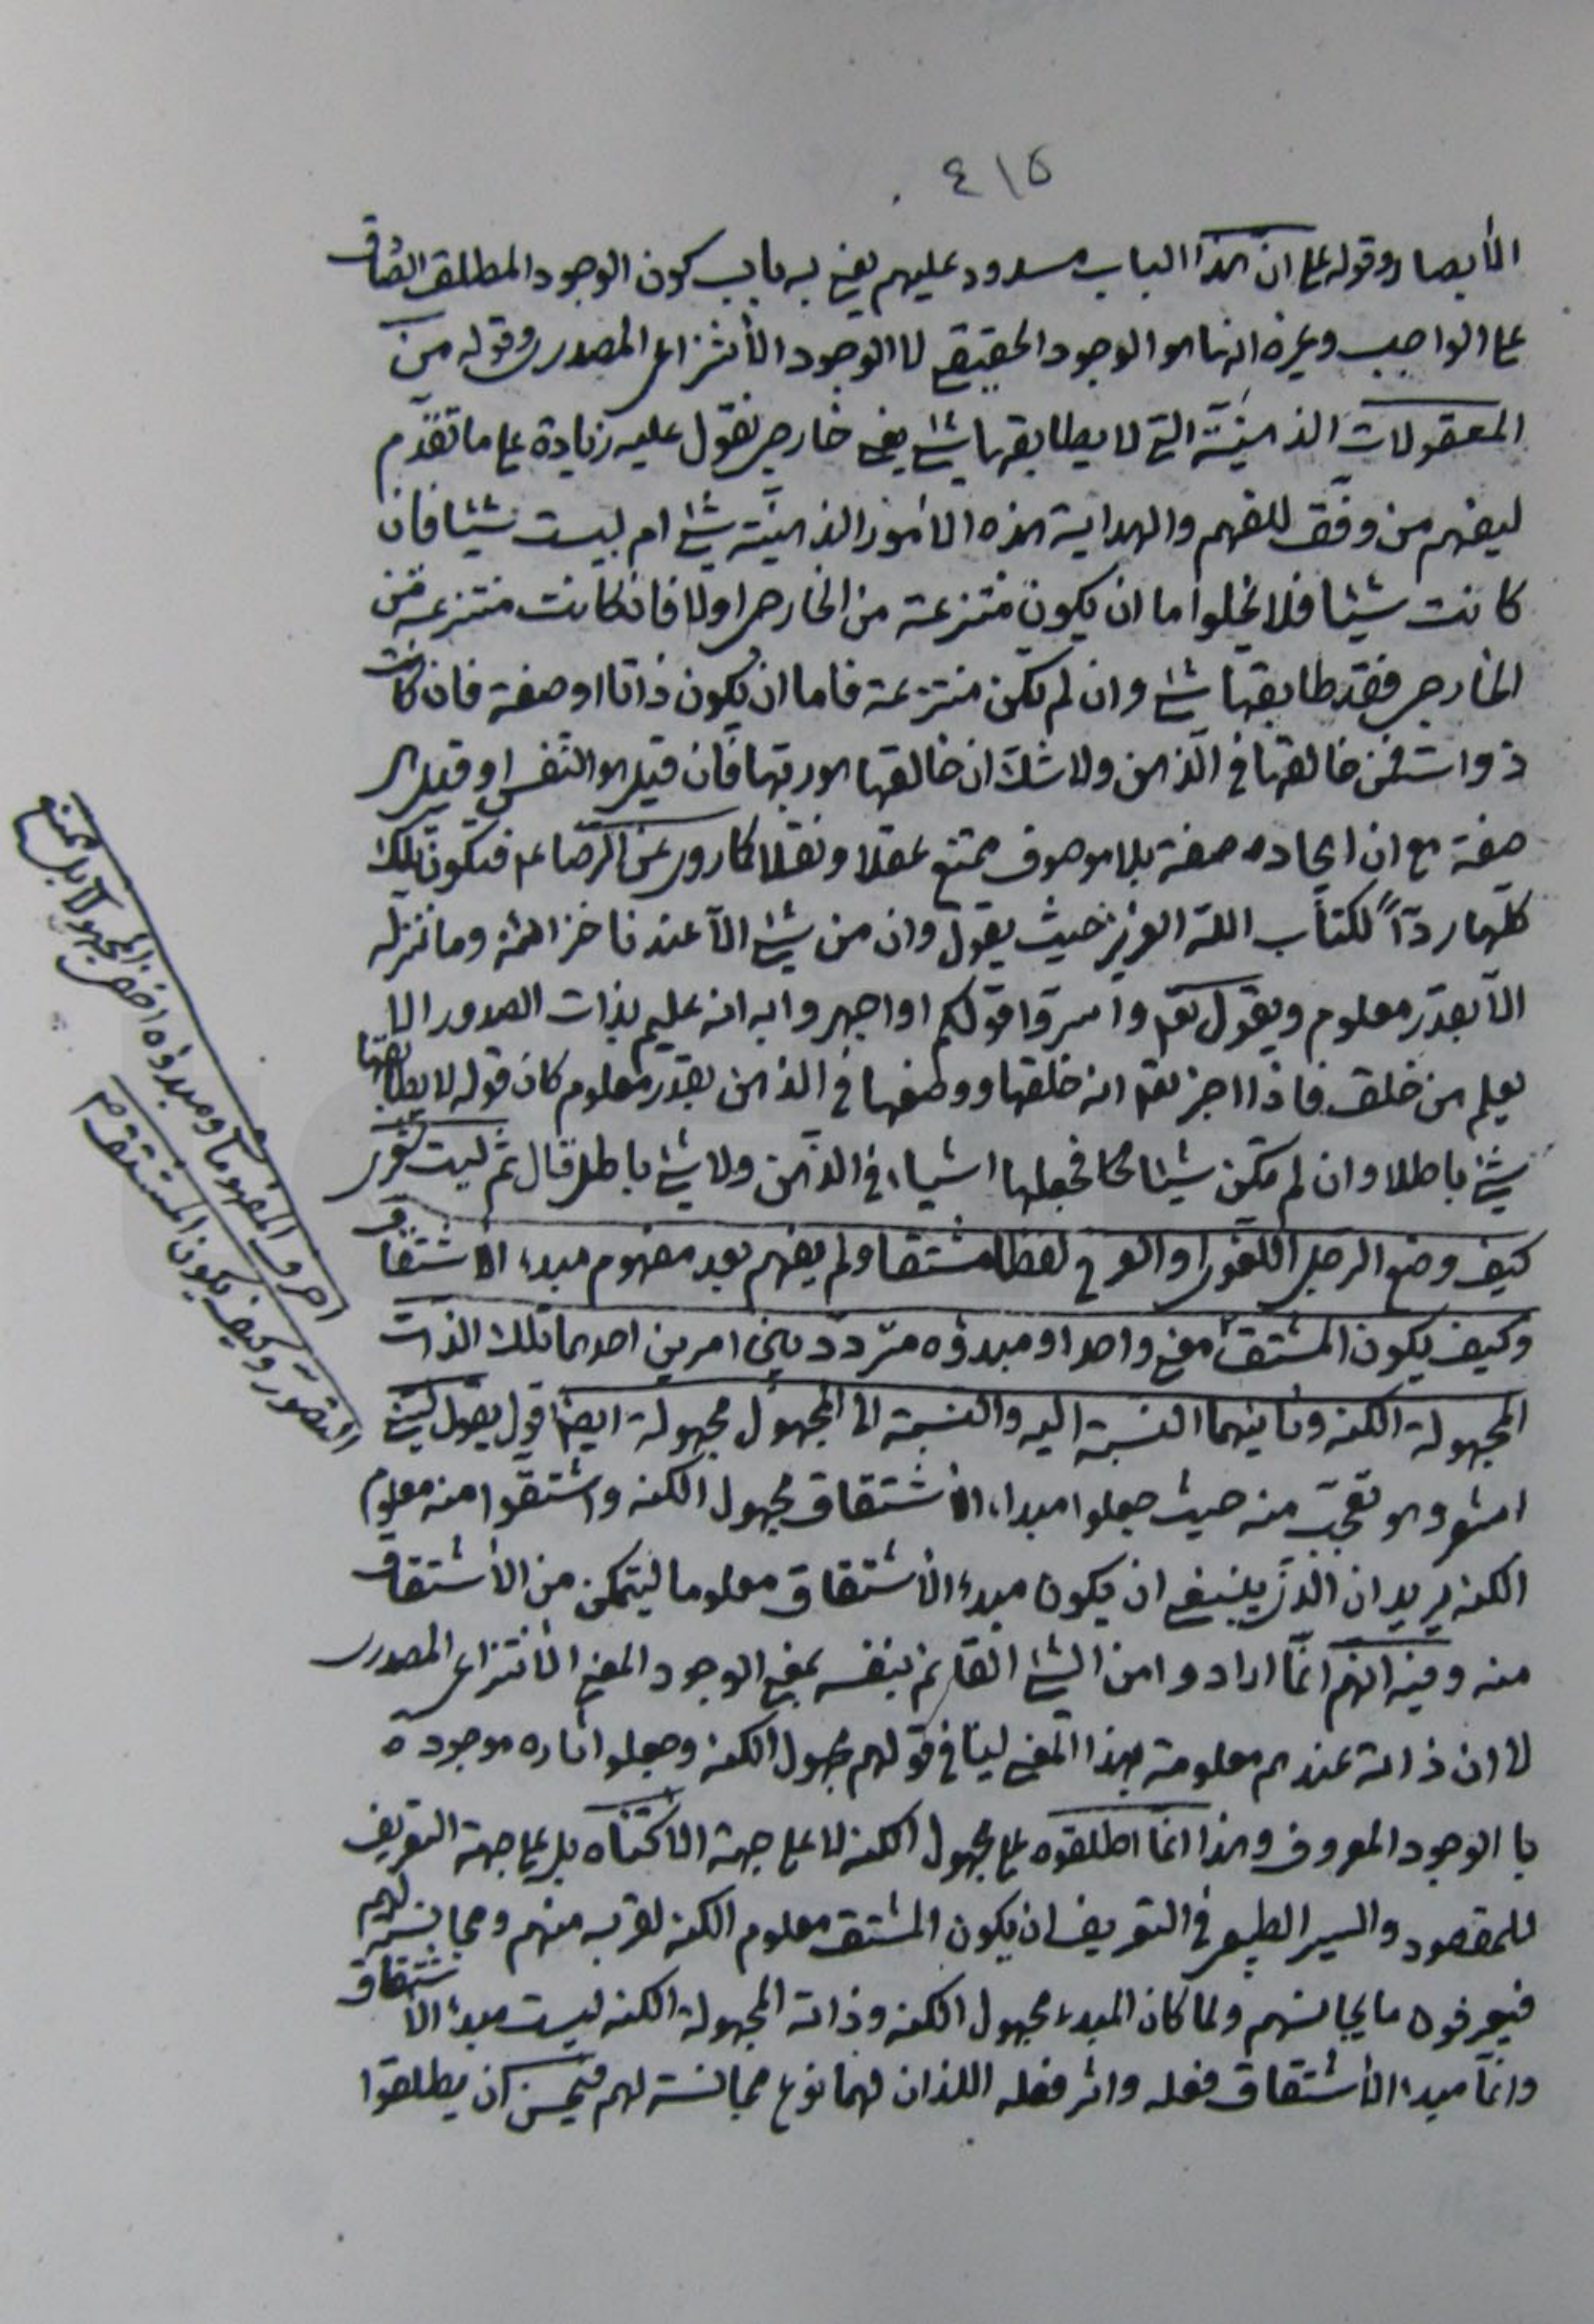 ٤١٥
الأبصار وقوله على ان هذا الباب مسدود عليهم يعني به باب كون الوجود المطلق الصادق
على الواجب وغيره انما هو الوجود الحقيقي لا الوجود الأنتزاعي المصدري وقوله من
المعقولات الذهنيّة التي لا يطابقها شئ يعني خارجي نقول عليه زيادة على ما تقدّم
ليفهم من وفّق للفهم والهداية هذه الأمور الذهنيّة شئ ام ليست شيئا فان
كانت شيئا فلا يخلوا ما ان يكون منتزعة من الخارجي اولا فان كانت منتزعة من
الخارجي فقد طابقها شئ وان لم تكن منتزعة فاما ان تكون ذاتا او صفة فان كانت
ذوات فمن خالقها في الذهن ولا شك ان خالقها هو ربها فان قيل هو النفس او قيل هي
صفة مع ان ايجاده صفة بلا موصوف ممتنع عقلا ونقلا كما روي عن الرضا عم فتكون تلك
كلّها ردّاً لكتاب اللّه العزيز حيث يقول وان من شئ الّا عندنا خزائنه وما ننزله
الّا بقدر معلوم ويقول تعم واسرّوا قولكم او اجهروا به انه عليم بذات الصدور الا
يعلم من خلق فاذا اخبر تعم انه خلقها ووضعها في الذهن بقدر معلوم كان قوله لا يطابقها
شئ باطلا وان لم تكن شيئا فجعلها اشياء في الذهن ولا شئ باطل قال ثم ليت شعري
كيف وضع الرجل اللغوي او العرفي لفظا مشتقا ولم يفهم بعد مفهوم مبدء الأشتقاق
وكيف يكون المشتق معنى واحدا ومبدؤه متردد بين امرين احدهما تلك الذات
المجهولة الكنه وثانيهما النسبة اليه والنسبة الى المجهول مجهولة ايضا اقول يقول ليتني
اشعر وهو تعجّب منه حيث جعلوا مبداء الأشتقاق مجهول الكنه واشتقّوا منه معلوم
الكنه يريد ان الذي ينبغي ان يكون مبدء الأشتقاق معلوما ليتمكن من الأشتقاق
منه وفيه انهم انّما ارادوا من الشئ القائم بنفسه بمعنى الوجود المعنى الأنتزاعي المصدري
لا ان ذاته عندهم معلومة بهذا المعنى لينافي قولهم مجهول الكنه وجعلوا اثاره موجودة
با الوجود المعروف وهذا انما اطلقوه على مجهول الكنه لا على جهة الاكتناه بل على جهة التعريف
للمقصود والسير الطبيعي في التعريف ان يكون المشتق معلوم الكنه لقربه منهم ومجانسته لهم
فيعرفون ما يجانسهم ولما كان المبدء مجهول الكنه وذاته المجهولة الكنه ليست مبدء الأشتقاق
وانّما مبدء الأشتقاق فعله واثر فعله اللذان لهما نوع مجانسة لهم فيحسن ان يطلقوا
اعرف المفهومات ومبدؤه اخفى المجهولات بل ممتنع
التصوّر وكيف يكون المشتق